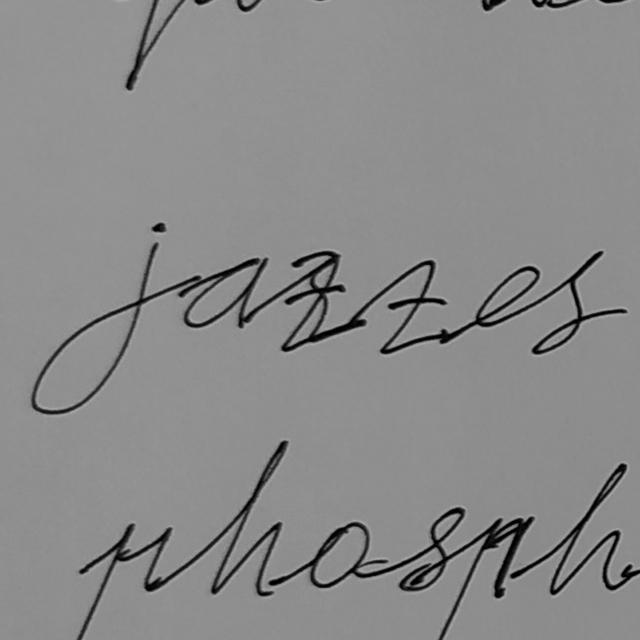 jazzes
phosph